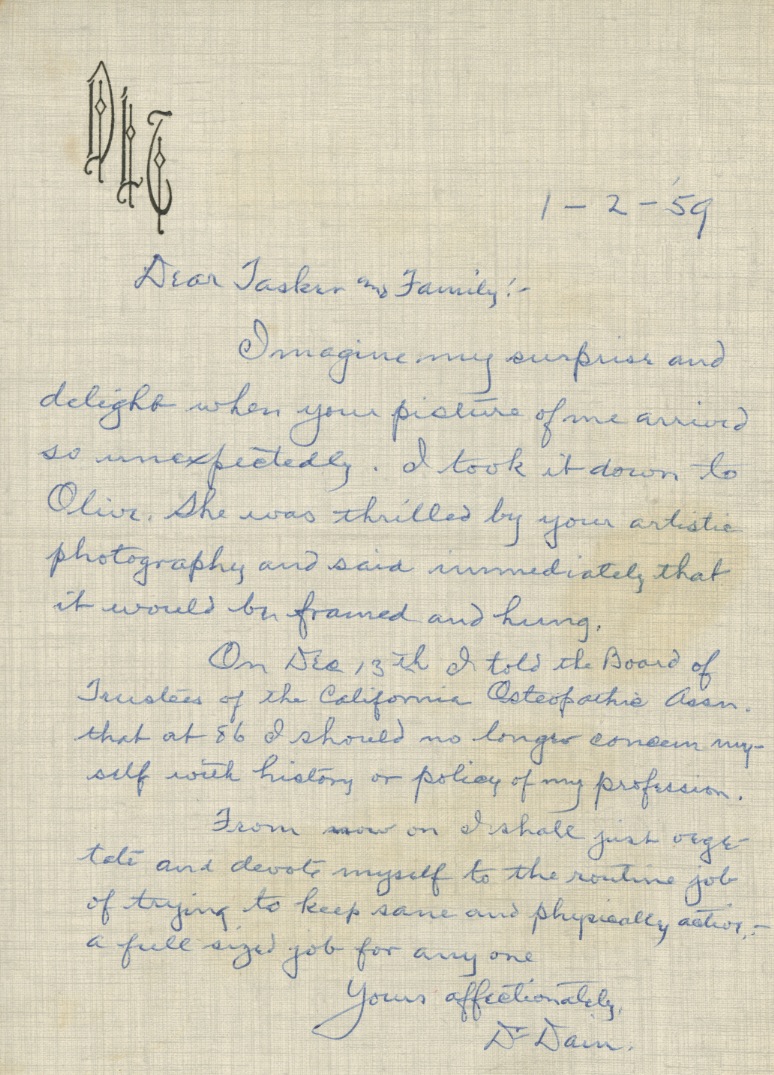 DLT
1-2-'59
Dear Tasker and Family:-
Imagine my surprise and
delight when your picture of me arrived
so unexpectedly. I took it down to
Olive. She was thrilled by your artistic
photography and said immediately that
it would be framed and hung.
On Dec 13th I told the Board of
Trustees of the California Osteopathic Assn.
that at 86 I should no longer concern my-
self with history or policy of my profession.
From now on I shall just vege-
tate and devote myself to the routine job
of trying to keep sane and physically active,-
a full sized job for any one
Yours affectionately,
Dr Dain.